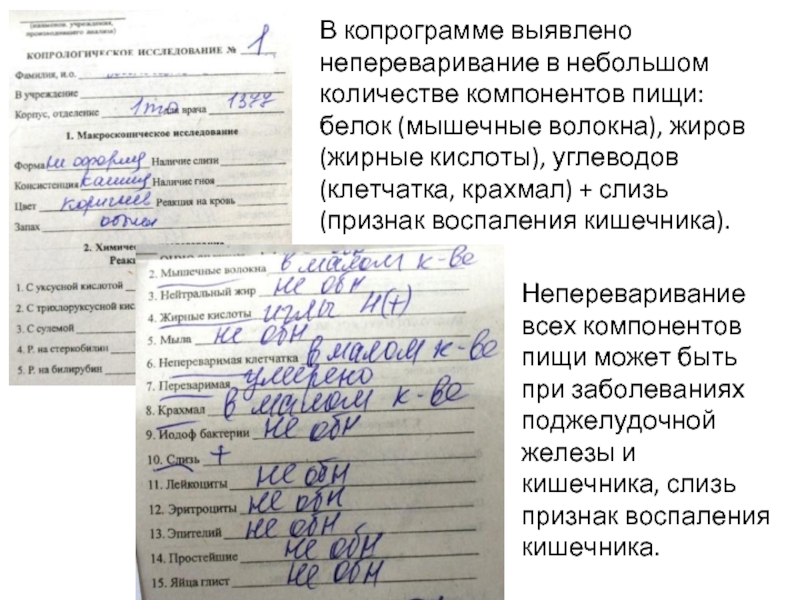 (название учреждения,
производившего анализ)
КОПРОЛОГИЧЕСКОЕ ИССЛЕДОВАНИЕ № 1
Фамилия, и.о.
В учреждение
Корпус, отделение 1 т/о для врача 1377
1. Макроскопическое исследование
Форма не оформл Наличие слизи
Консистенция кашиц Наличие гноя
Цвет коричнев Реакция на кровь
Запах обычн
2. Химическое исследование
Реакц
1. С уксусной кислотой
2. С трихлоруксусной кисл
3. С сулемой
4. Р. на стеркобилин
5. Р. на билирубин
2. Мышечные волокна в малом к-ве
3. Нейтральный жир не обн
4. Жирные кислоты иглы Н(+)
5. Мыла не обн
6. Непереваримая клетчатка в малом к-ве
7. Переваримая умерено
8. Крахмал в малом к-ве
9. Йодоф бактерии не обн
10. Слизь +
11. Лейкоциты не обн
12. Эритроциты не обн
13. Эпителий не обн
14. Простейшие не обн
15. Яйца глист не обн
В копрограмме выявлено
непереваривание в небольшом
количестве компонентов пищи:
белок (мышечные волокна), жиров
(жирные кислоты), углеводов
(клетчатка, крахмал) + слизь
(признак воспаления кишечника).
Непереваривание
всех компонентов
пищи может быть
при заболеваниях
поджелудочной
железы и
кишечника, слизь
признак воспаления
кишечника.